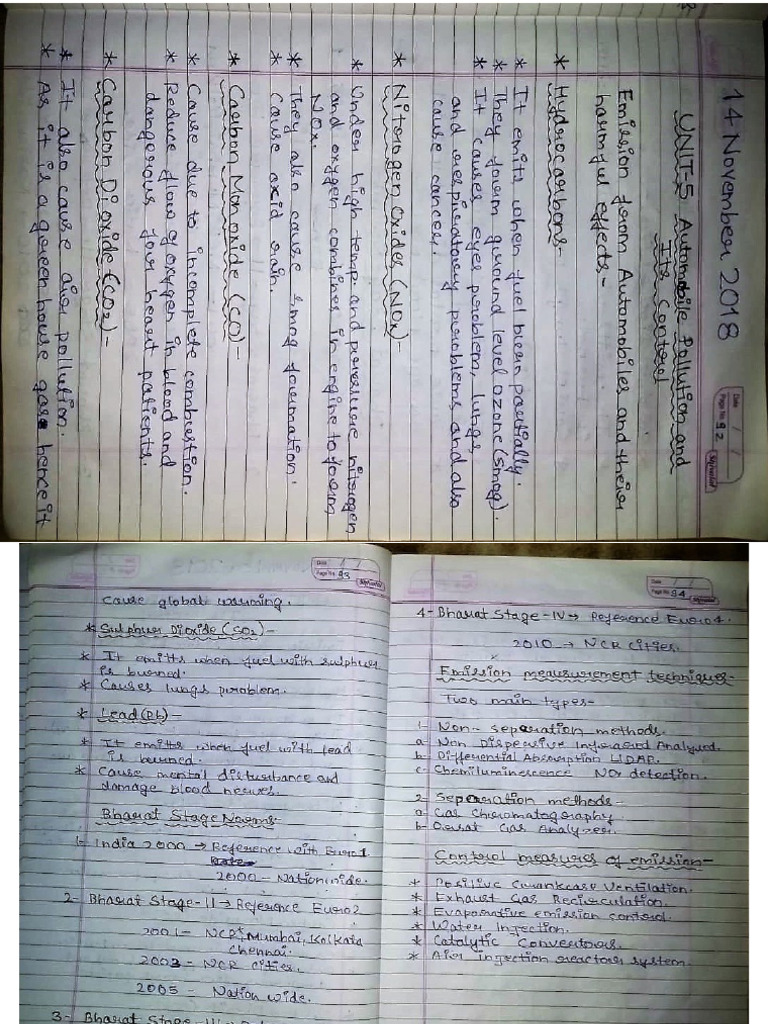 14 November 2018
Date / /
Page No. 92
UNIT-5 Automobile Pollution and
Its Control
Emission from Automobiles and their
harmful effects-
* Hydrocarbons-
* It emits when fuel burn partially.
* They form ground level ozone (smog).
* It causes eyes problem, lungs
and respiratory problems and also
cause cancer.
* Nitrogen Oxides (NOx)-
* Under high temp and pressure nitrogen
and oxygen combines in engine to form
NOx.
* They also cause smog formation.
* Cause acid rain.
* Carbon Monoxide (CO)-
* Cause due to incomplete combustion.
* Reduce flow of oxygen in blood and
dangerous for heart patients.
* Carbon Dioxide (CO2)-
* It also cause air pollution.
* As it is a green house gas hence it
Date / /
Page No. 93
cause global warming.
* Sulphur Dioxide (SO2)-
* It emitts when fuel with sulphur
is burned.
* Causes lungs problem.
* Lead (Pb)-
* It emitts when fuel with lead
is burned.
* Cause mental disturbance and
damage blood nerves.
Bharat Stage Norms-
1- India 2000 → Reference with Euro 1
2000 - Nationwide.
2- Bharat Stage-II → Reference Euro 2
2001- NCR, Mumbai, Kolkata
Chennai.
2003 - NCR Cities.
2005 - Nation wide.
3- Bharat Stage-III
Date / /
Page No. 94
4- Bharat Stage-IV → Reference Euro 4.
2010 → NCR Cities.
Emission measurement techniques-
Two main types-
1- Non-separation methods.
a- Non Dispersive Infrared Analyzed.
b- Differential Absorption LIDAR.
c- Chemiluminescence NOx detection.
2- Separation methods-
a- Gas Chromatography.
b- Orsat Gas Analyzer.
Control measures of emission-
* Positive Crankcase Ventilation.
* Exhaust Gas Recirculation.
* Evaporative emission control.
* Water Injection.
* Catalytic Convertors.
* Air injection reactor system.